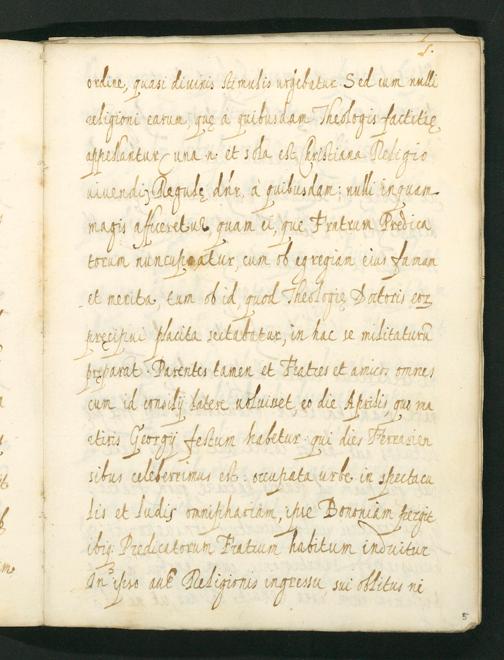 5.
ordine, quasi divinis stimulis urgebatur. Sed cum nulli
religioni earum, quę à quibusdam Theologis factitię
appellantur (una n. et sola est Christiana Religio
vivendi; Regulę dnr, à quibusdam; nulli inquam
magis afficeretur, quam ei, que Fratrum Predica
torum nuncupatur, cum ob egregiam eius famam
et merita, tum ob id quod Theologię Doctoris eoꝝ
pręcipui placita sectabatur, in hac se militaturū
preparat. Parentes tamen et Fratres et amicos omnes
cum id consilij latere voluisset, eo die Aprilis, quo ma
rtiris Georgij festum habetur qui dies Ferrarien
sibus celeberrimus est: occupata urbe in spectacu
lis et ludis omnifariam, ipse Bononiam pergit
ibiq Predicatorum Fratrum habitum induitur
In ipso autē Religionis ingressu sui oblitus ne
5